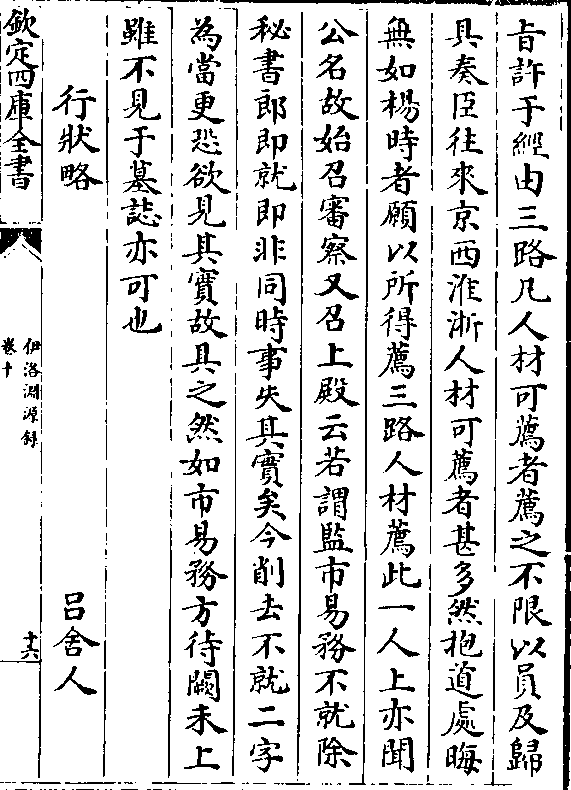 旨許于經由三路凡人材可薦者薦之不限以員及歸
具奏臣往來京西淮浙人材可薦者甚多然抱道處晦
無如楊時者願以所得薦三路人材薦此一人上亦聞
公名故始召審察又召上殿云若謂監市易務不就除
秘書郎即就即非同時事失其實矣今削去不就二字
為當更恐欲見其實故具之然如市易務方待闕未上
雖不見于墓誌亦可也
行狀略 呂舍人
欽定四庫全書
伊洛淵源録
卷十
十六